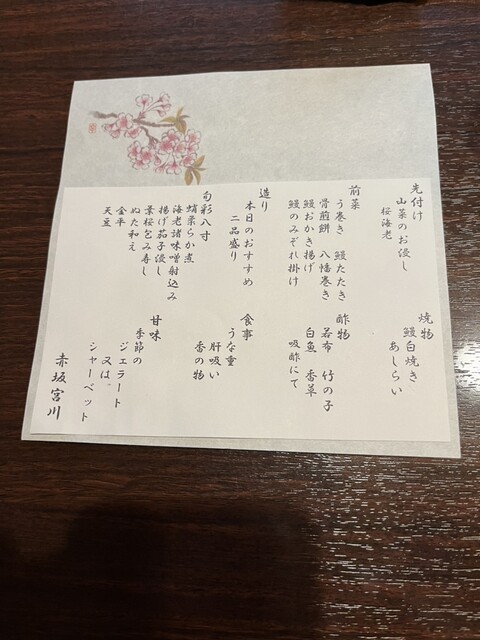 先付け
山菜のお浸し
桜海老
前菜
う巻き 鰻たたき
骨煎餅 八幡巻き
鰻おかき揚げ
鰻のみぞれ掛け
造り
本日のおすすめ
二品盛り
旬彩八寸
蛸柔らか煮
海老諸味噌射込み
揚げ茄子浸し
葉桜包み寿し
ぬた和え
金平
天豆
焼物
鰻白焼き
あしらい
酢物
若布 竹の子
白魚 香草
吸酢にて
食事
うな重
肝吸い
香の物
甘味
季節の
ジェラート
又は、
シャーベット
赤坂宮川